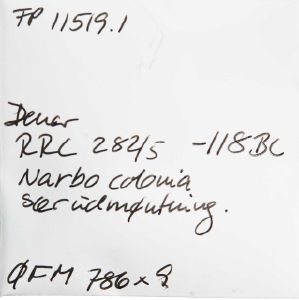 FP 11519.1
Denar
RRC 282/5 -118BC
Narbo colonia
særudmøntning.
ØFM 786x9